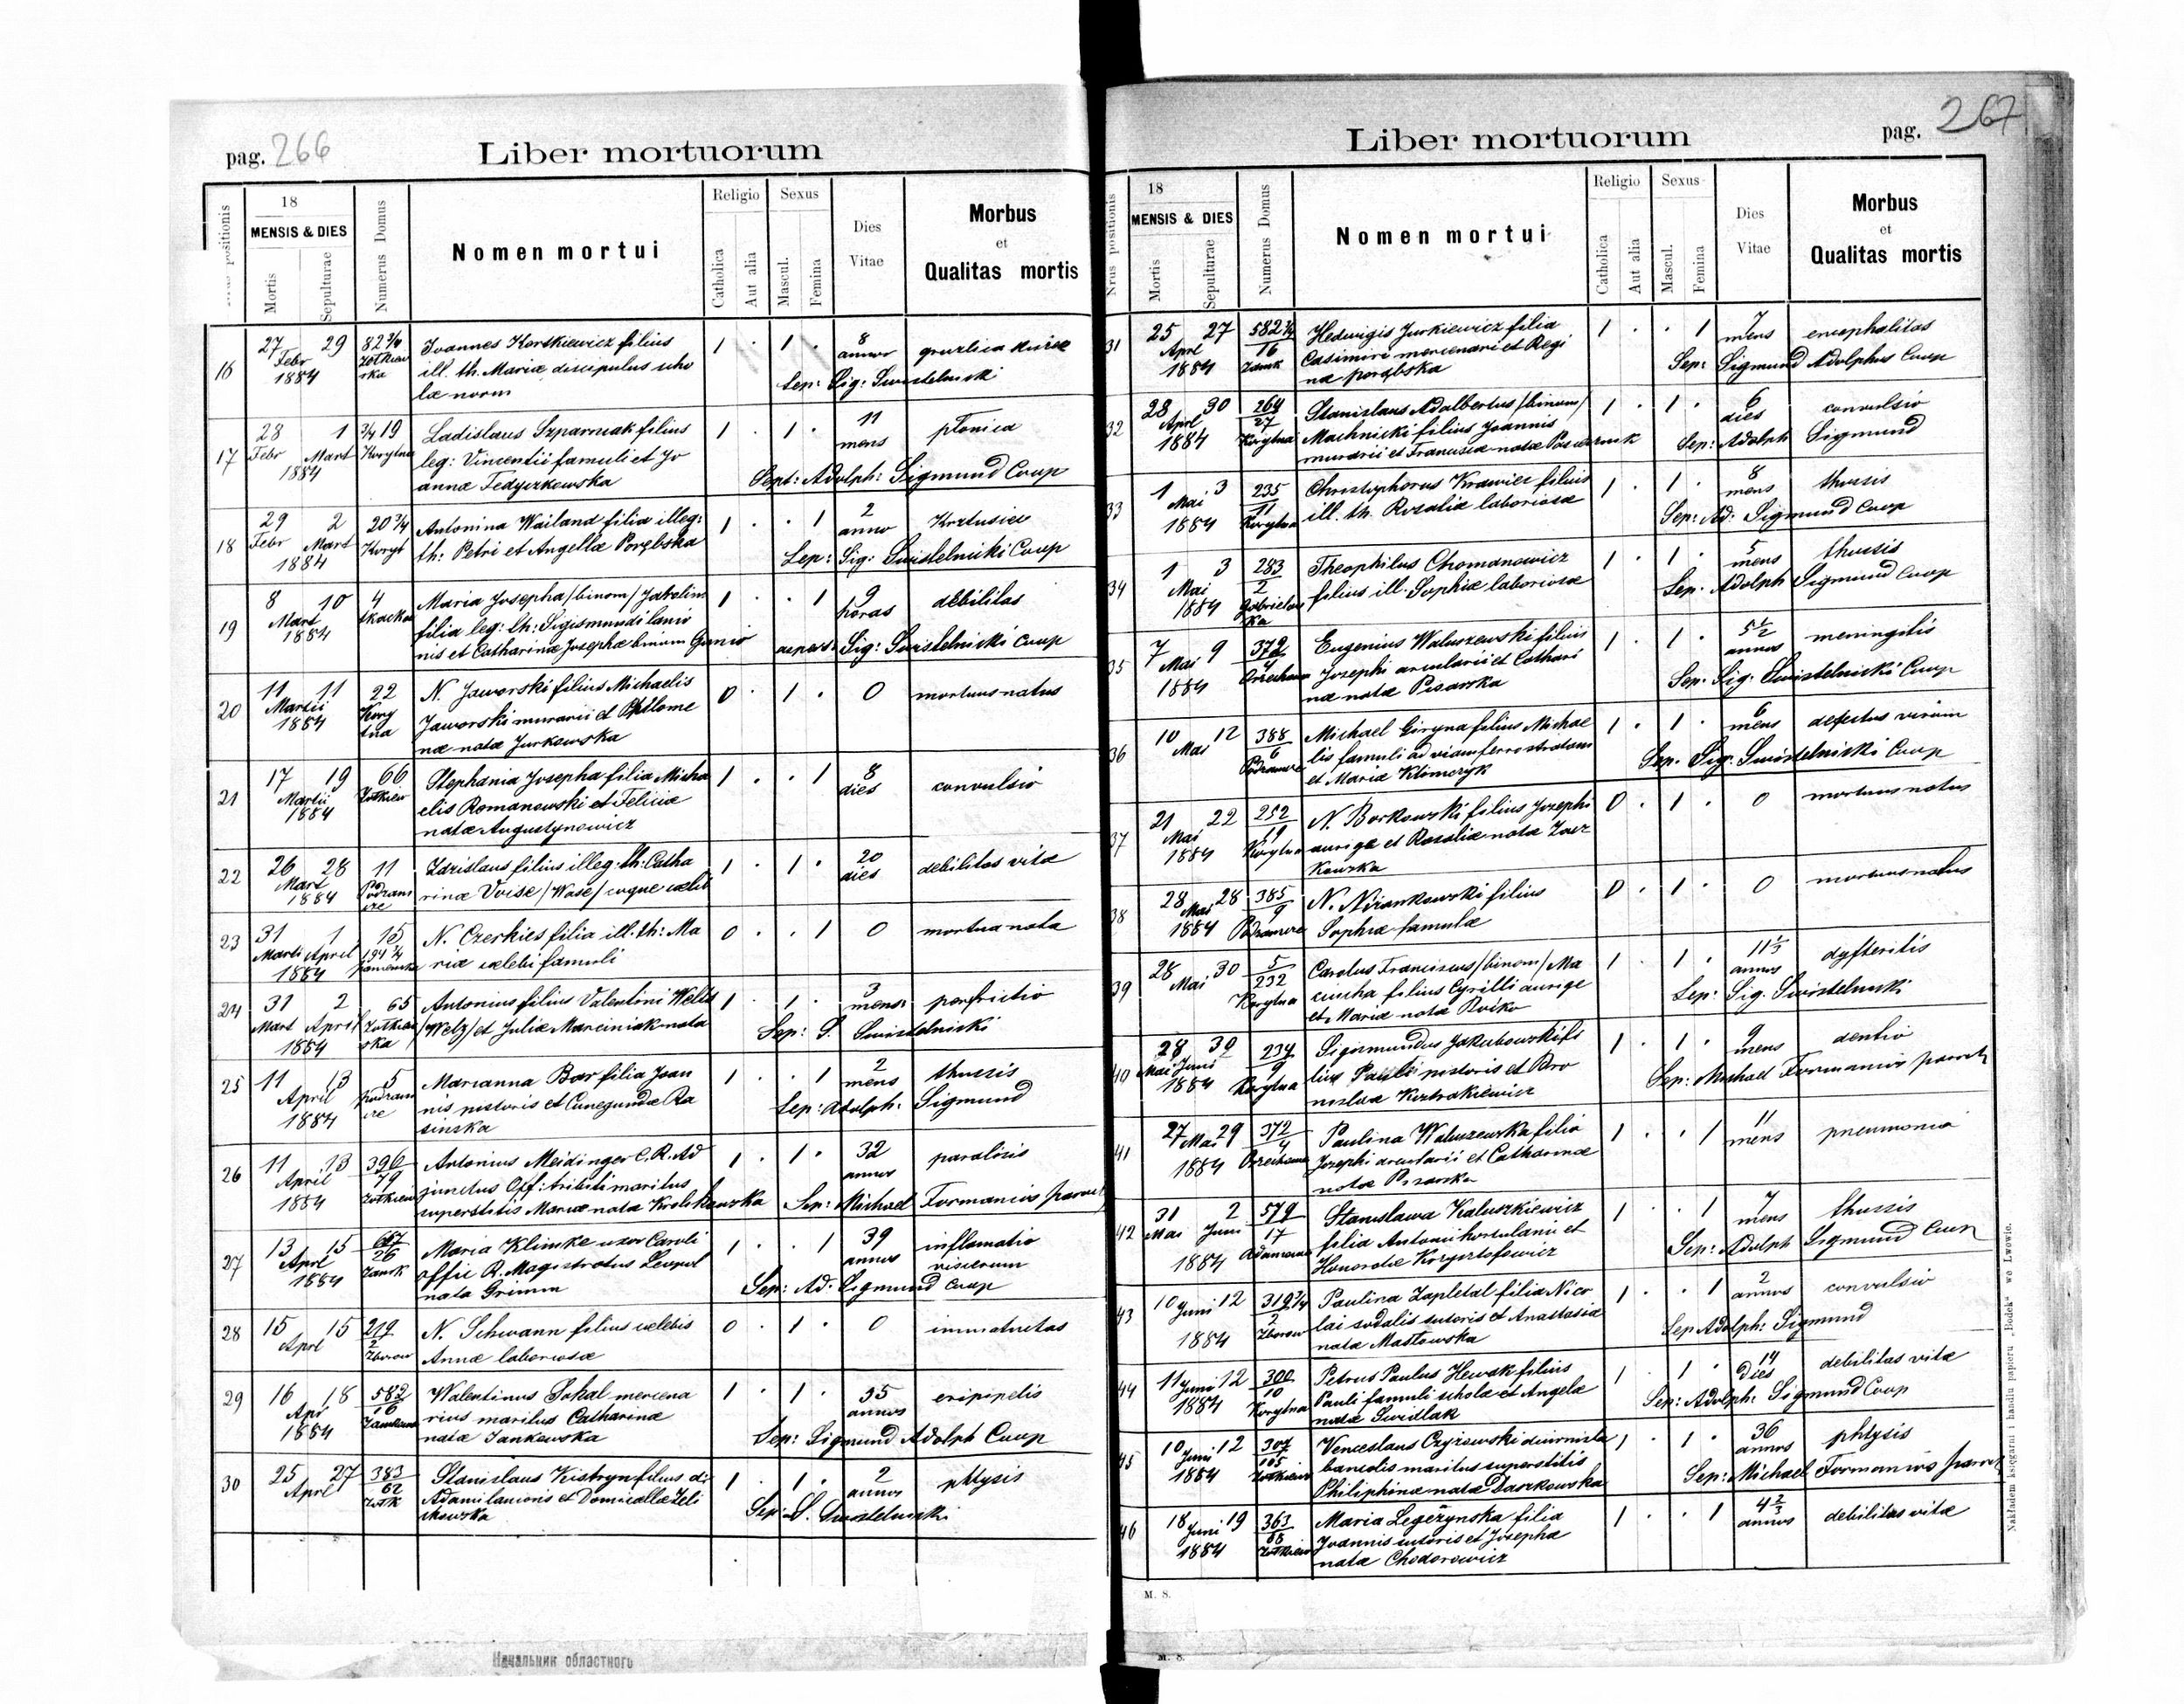 pag. 266
Liber mortuorum
positionis
18
MENSIS & DIES
Mortis
Sepulturae
Numerus Domus
Nomen mortui
Religio
Catholica
Aut alia
Sexus
Mascul.
Femina
Dies
Vitae
Morbus
et
Qualitas mortis
16 27 29 82 3/4 Joannes Korstkiewicz filius 1 . 1 . 8
Febr ill. th. Mariæ discipulus scho annos
1884 ska læ norm Sep: Sig: Swistelnicki
17 28 1 3/4 19 Ladislaus Szparniak filius 1 . 1 . 11
Febr Mart Korytna leg: Vincentii famuli et Jo mens
1884 annæ Fedyczkowska Sept: Adolph: Sigmund Coop
18 29 2 20 3/4 Antonina Wailand filia illeg: 1 . . 1 2 Krztusiec
Febr Mart Koryt th: Petri et Angellæ Porębska anno
1884 Sep: Sig: Swistelnicki Coop
19 8 10 4 Maria Josepha /binom/ 1 . . 1 9 debilitas
Mart filia leg: th: Sigismundi lanio horas
1884 nis et Catharinæ Josephæ binum Sig: Swistelnicki Coop
20 11 11 22 N. Jaworski filius Michaelis 0 . 1 . 0 mortuus natus
Martii Kory Jaworski murarii et Philome
1884 tna næ natæ Jurkowska
21 17 19 66 Stephania Josepha filia Micha 1 . . 1 8 convulsio
Martii Zołkiew elis Romanowski et Feliciæ dies
1884 natæ Augustynowicz
22 26 28 11 Zdzislaus filius illeg: th. Catha 1 . 1 . 20 debilitas vitæ
Mart Podzam rinæ Voise /Wase/ coquæ celib dies
1884 cze
23 31 1 15 N. Czerkies filia ill. th: Ma 0 . . 1 0 mortua nata
Marti April riæ celebi famuli
1884
24 31 2 65 Antonius filius Valentini Welts 1 . 1 . 3 perfrictio
Mart April Zołkiew /Welz/ et Juliæ Marciniak nata mens
1884 ska Sep: S. Swistelnicki
25 11 13 5 Marianna Bar filia Joan 1 . . 1 2 thussis
April Podzam nis pistoris et Cunegundæ Ra mens
1884 cze sinska Sep: Adolph: Sigmund
26 11 13 396 Antonius Meidinger C. R. Ad 1 . 1 . 32 paralisis
April 79 junctus Off: tributi maritus annos
1884 Zołkiew superstitis Mariæ nata Krolikowska Sep: Michael Formanios paroch
27 13 15 Maria Klimke uxor Caroli 1 . . 1 39 inflamatio
Aprl 26 offic R. Magistratus Leopol annos viscerum
1884 Zamk nata Grimm Sep: Ad. Sigmund Coop
28 15 15 219 N. Schwann filius celebis 0 . 1 . 0 immaturitas
Aprl 2 Annæ laboriosæ
Zborow
29 16 18 582 Walentinus Sokal mercena 1 . 1 . 35 erisipelis
Apr 16 rius maritus Catharinæ annos
1884 natæ Jankowska Sep: Sigmund Adolph Coop
30 25 27 383 Stanislaus Kistryn filius 1 . 1 . 2 phtysis
April 62 Adami lanionis et Domicellæ Zeli annos
Zołk kowska Sep: S. Swistelnicki
Начальник областного
Liber mortuorum
pag. 267
Nrus positionis
18
MENSIS & DIES
Mortis
Sepulturae
Numerus Domus
Nomen mortui
Religio
Catholica
Aut alia
Sexus
Mascul.
Femina
Dies
Vitae
Morbus
et
Qualitas mortis
31 25 27 582 3/4 Hedwigis Jurkiewicz filia 1 . . 1 7 encephalitas
Aprl 16 Casimiri mercenarii et Regi mens
1884 Zamk næ Porębska Sep: Sigmund Adolphus Coop
32 28 30 264 Stanislaus Adalbertus /binom/ 1 . 1 . 6 convulsio
Aprl 27 Machnicki filius Joannis dies
1884 Korytna murarii et Franciscæ natæ Sep: Adolph Sigmund
33 1 3 235 Christophorus Krawiec filius 1 . 1 . 8 thussis
Mai 11 ill. th. Rozaliæ laboriosæ mens
1884 Korytna Sep: Ad: Sigmund Coop
34 1 3 283 Theophilus Chomanowicz 1 . 1 . 5 thussis
Mai 2 filius ill. Sophiæ laboriosæ mens
1884 Gabrielow Sep. Adolph Sigmund Coop
ka
35 7 9 372 Eugenius Waluszewski filius 1 . 1 . 5 1/2 meningitis
Mai 4 Josephi arcularii et Cathari annos
1884 næ natæ Pisarska Sep. Sig. Swistelnicki Coop
36 10 12 388 Michael Giryna filius Michae 1 . 1 . 6 defectus virium
Mai 6 lis famuli ad viam ferro stratam mens
Podzamcze et Mariæ Klimczyk Sep. Sig. Swistelnicki Coop
37 21 22 252 N. Borkowski filius Josephi 0 . 1 . 0 mortuus natus
Mai 19 aurigæ et Rosaliæ natæ
1884 Korytna kowska
38 28 28 385 N. filius 0 . 1 . 0 mortuus natus
Mai 9 Sophiæ famulæ
1884 Podzamcze
39 28 30 5 Carolus Franciscus /binom/ Ma 1 . 1 . 11 1/2 dyfteritis
Mai 232 ciucha filius Cyrilli aurigæ annos
Korytna et Mariæ nata Boiko Sep: Sig. Swistelnicki
40 28 30 234 Sigismundus Jakubowski fi 1 . 1 . 9 dentio
Mai Juni 9 lius Pauli pistoris et Bro mens
1884 Korytna nislaæ Sep: Michael Formanios paroch
41 27 29 372 Paulina Waluszewska filia 1 . . 1 11 pneumonia
Mai 4 Josephi arcularii et Catharinæ mens
1884 natæ Pisarska
42 31 2 579 Stanislawa Kaluszkiewicz 1 . . 1 7 thussis
Mai Juni 17 filia Antonii hortulani et mens
1884 Honoratæ Krzysztofowicz Sep: Adolph Sigmund Coop
43 10 12 319 3/4 Paulina Zapletal filia Nico 1 . . 1 2 convulsio
Juni 2 lai sodalis sutoris et Anastasiæ annos
1884 Zborow nata Masłowska Sep Adolph: Sigmund
44 11 12 300 Petrus Paulus Hewak filius 1 . 1 . 14 debilitas vitæ
Juni 10 Pauli famuli scholæ et Angelæ Dies
1884 Korytna natæ Swidlak Sep: Adolph: Sigmund Coop
45 10 12 307 Venceslaus Czyżewski diurnista 1 . 1 . 36 phtysis
Juni 105 maritus superstitis annos
1884 Zołkiew Philiphinæ natæ Daszkowska Sep: Michael Formanios paroch
46 18 19 363 Maria Legeżynska filia 1 . . 1 4 2/3 debilitas vitæ
Juni 68 Joannis sutoris et Josepha annos
1884 Zołkiew nata Chodorowicz
M. S.
M. S.
Nakładem księgarni i handlu papieru „Bodek" we Lwowie.